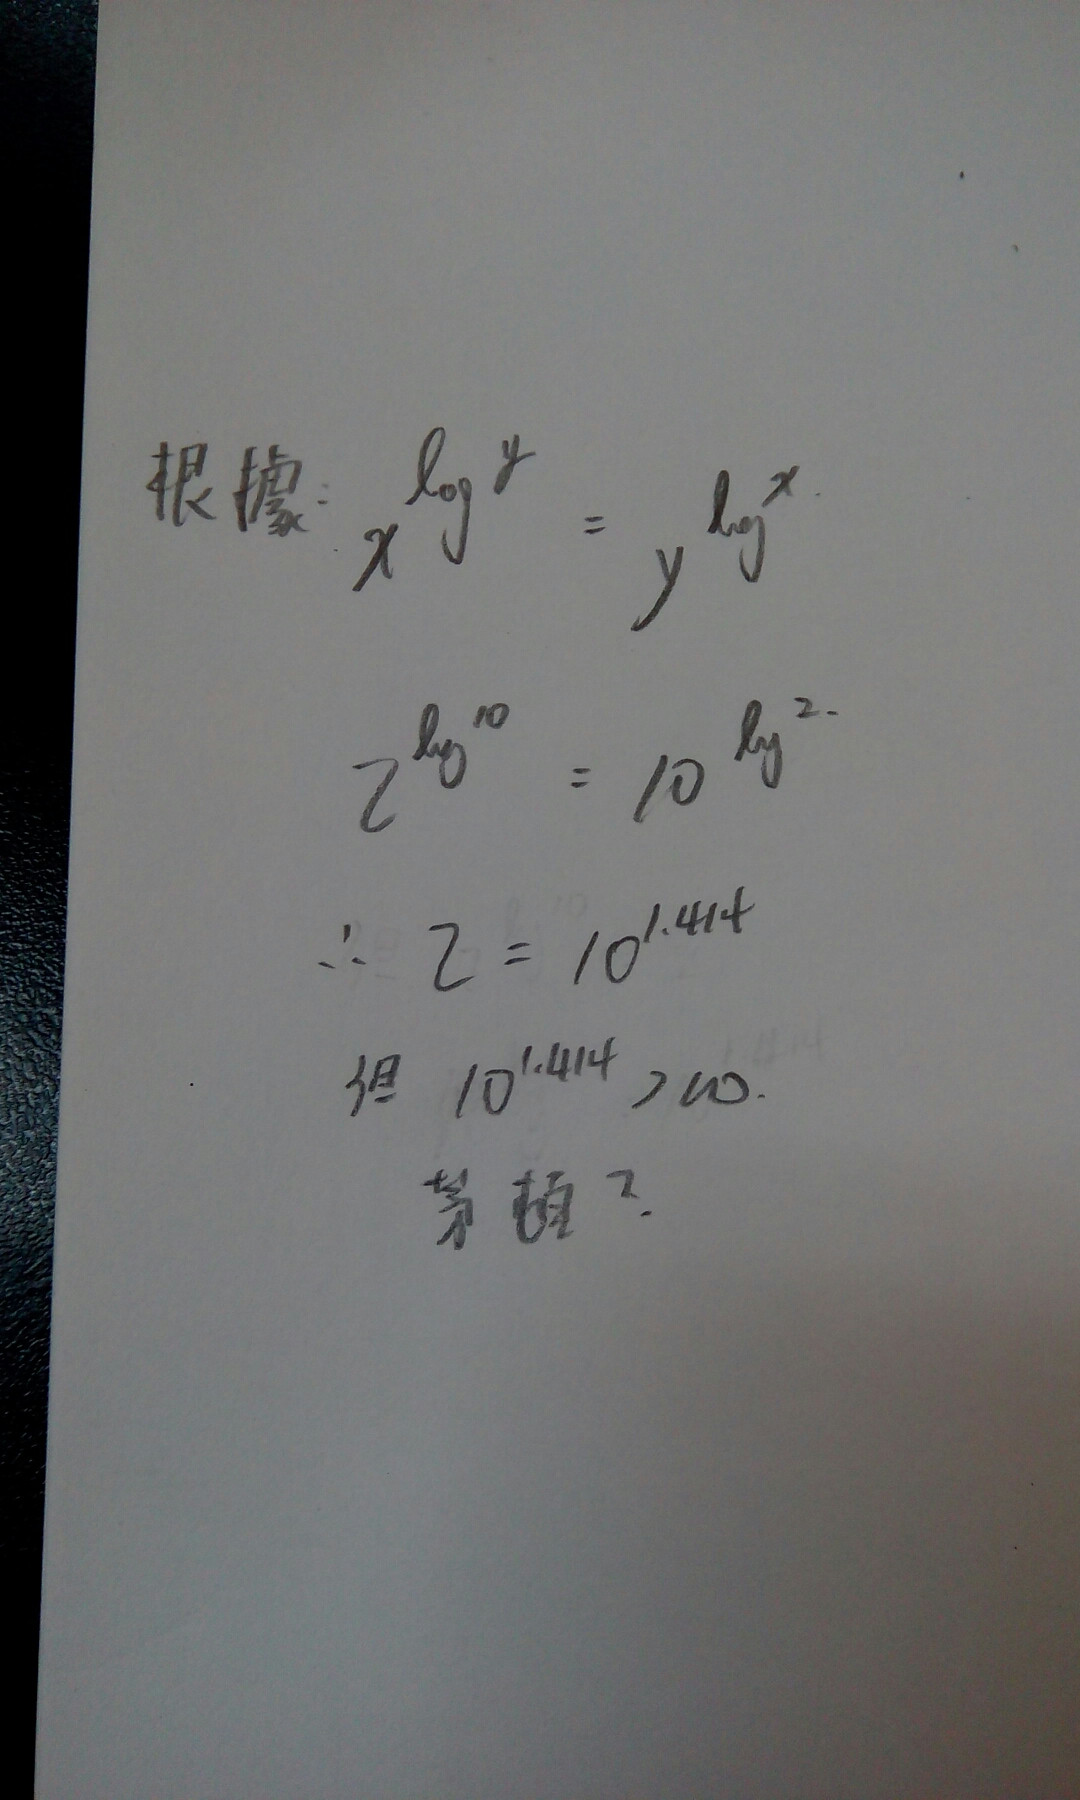 根據: x^{log y} = y^{log x}.
2^{log 10} = 10^{log 2}.
∴ 2 = 10^{1.414}
但 10^{1.414} > 10.
茅盾?